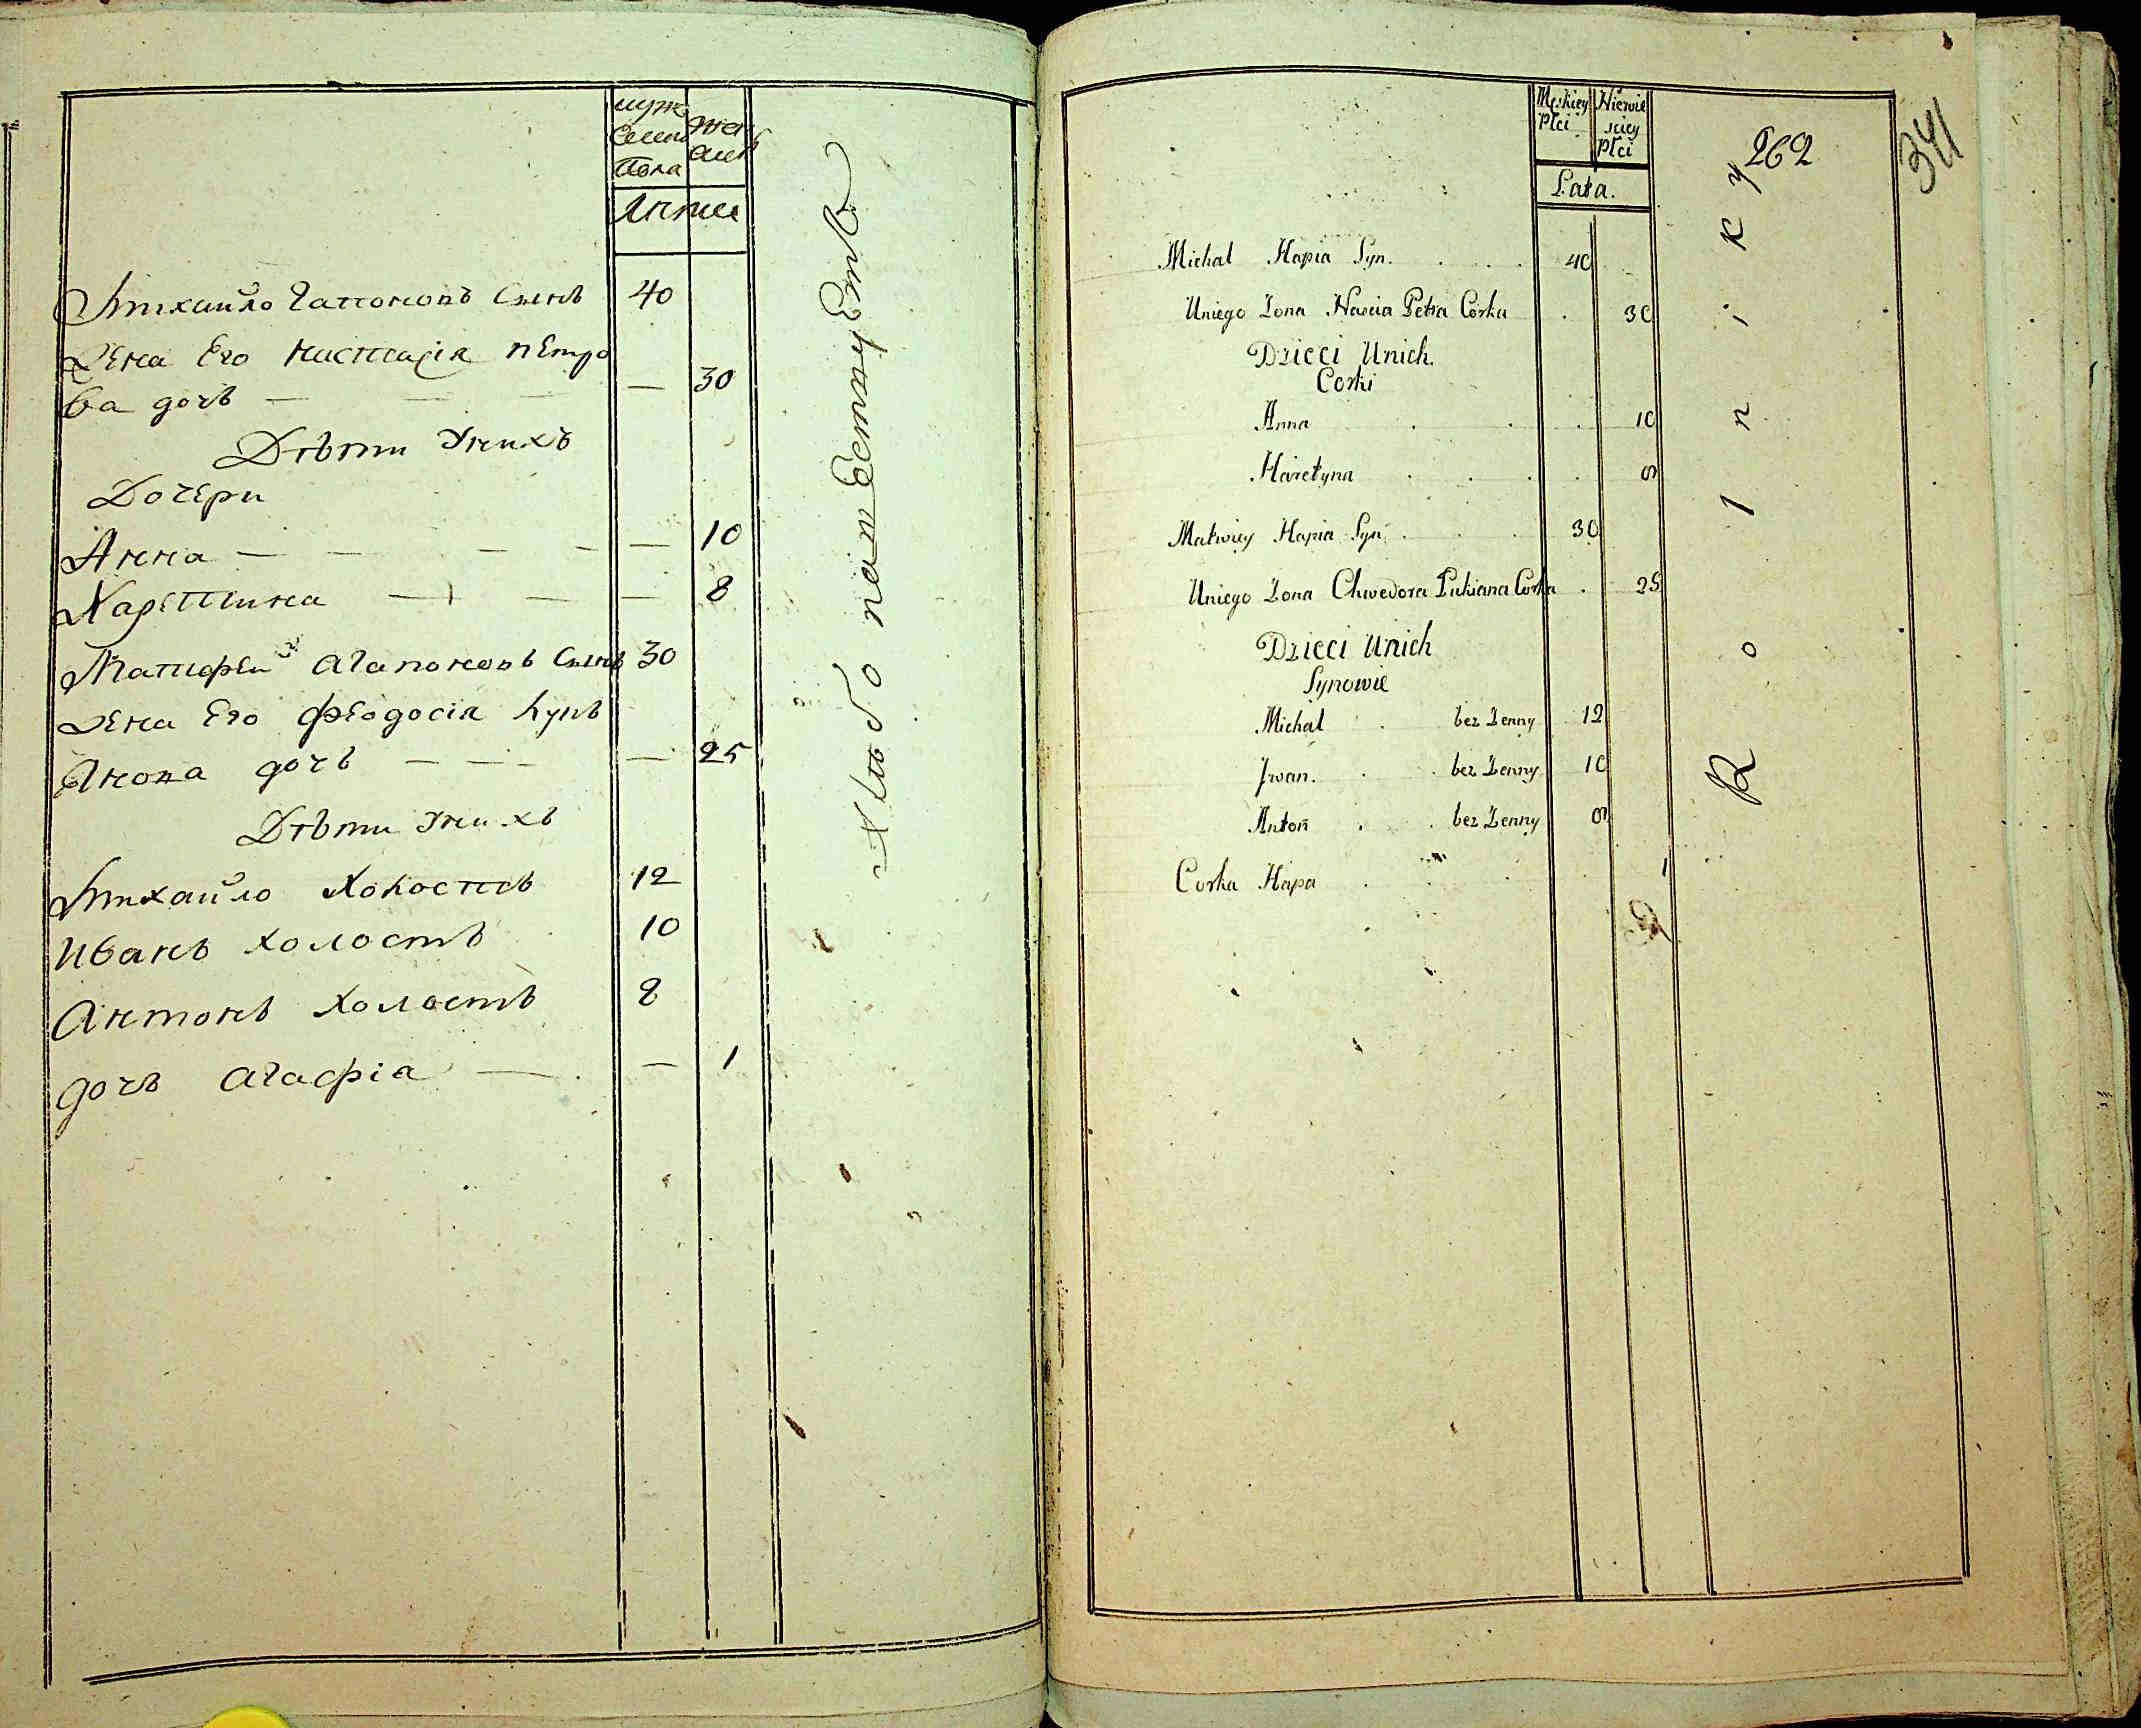 муж
ска
пола
жен
ска
Лѣта
Михайло Гапоновъ Сынъ 40
Жена Его настасія пЕтро
ва дочь — — — — 30
Дѣти Унихъ
Дочери
Анна — — — — — 10
Харитина — — — — 8
Матифей Агапоновъ Сынъ 30
Жена Его феодосія Луки
Анова дочь — — — — 25
Дѣти Унихъ
Михайло Холостъ 12
Иванъ холостъ 10
Антонъ холостъ 8
дочь Агафіа — — 1
Хлѣбопашественные
Męskiey
Płci
Niewie
sciey
Płci
Lata.
262
341
Michał Hapia Syn. 40
Uniego Zona Nascia Petra Corka 30
Dzieci Unich.
Corki
Anna 10
Haretyna 8
Matwiey Hapia Syn 30
Uniego Zona Chwedora Łukiana Corka 25
Dzieci Unich
Synowie
Michał bez Zenny 12
Jwan. bez Zenny 10
Anton bez Zenny 8
Corka Hapa 1
Rolniky